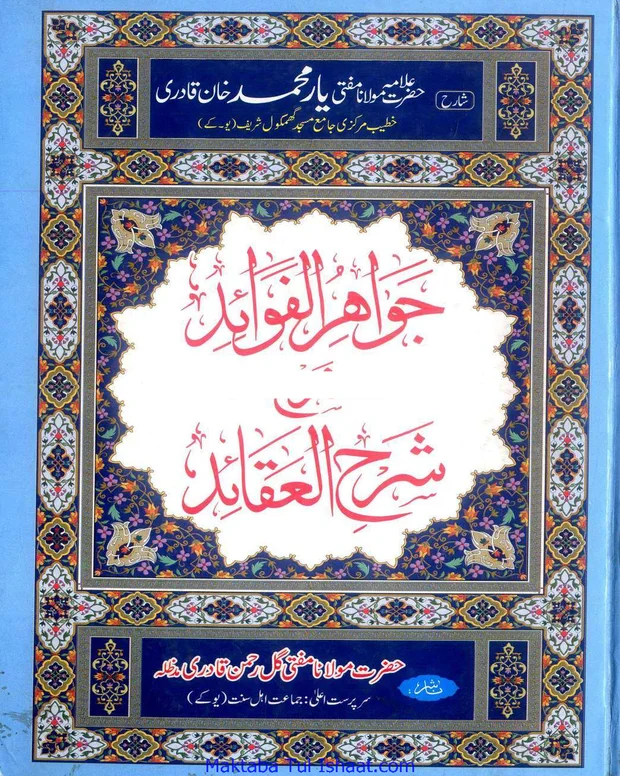 شارح حضرت علامہ مولانا مفتی یار محمد خان قادری
خطیب مرکزی جامع مسجد گھمکول شریف (یو۔کے)
جَوَاهِرُ الْفَوَائِد
شَرحِ الْعَقَائِد
ناشر حضرت مولانا مفتی گل رحمن قادری مدظلہ
سرپرست اعلیٰ: جماعت اہل سنت (یو کے)
Maktaba Tul Ishaat.com